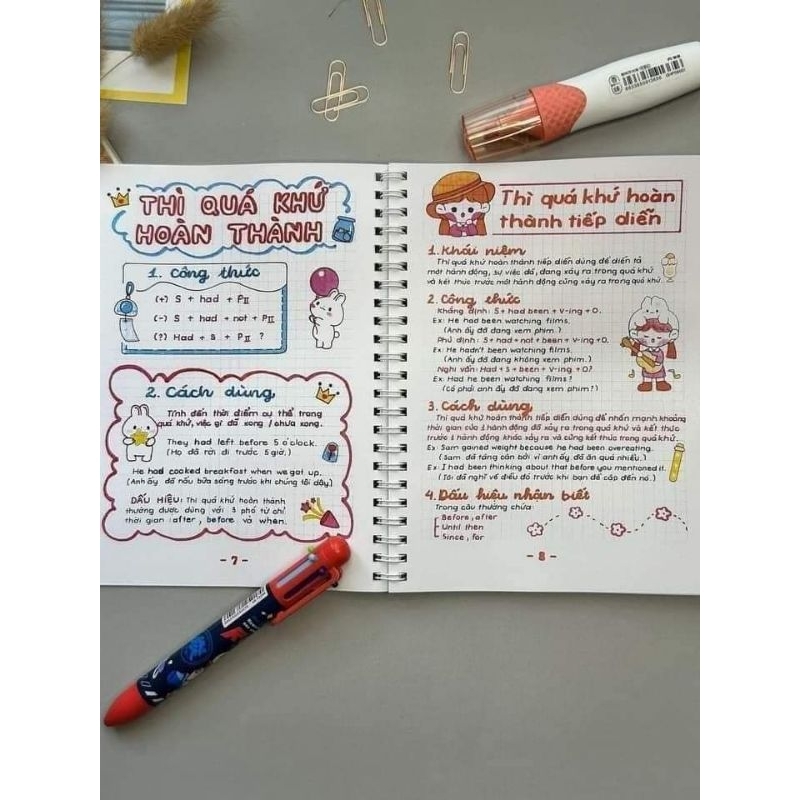 THÌ QUÁ KHỨ
HOÀN THÀNH
1. Công thức
(+) S + had + PII
(-) S + had + not + PII
(?) Had + S + PII ?
2. Cách dùng
Tính đến thời điểm cụ thể trong
quá khứ, việc gì đã xong / chưa xong.
They had left before 5 o'clock.
(Họ đã rời đi trước 5 giờ.)
He had cooked breakfast when we got up.
(Anh ấy đã nấu bữa sáng trước khi chúng tôi dậy)
DẤU HIỆU: Thì quá khứ hoàn thành
thường được dùng với 3 phó từ chỉ
thời gian: after, before và when.
- 7 -
Thì quá khứ hoàn
thành tiếp diễn
1. Khái niệm
Thì quá khứ hoàn thành tiếp diễn dùng để diễn tả
một hành động, sự việc đã, đang xảy ra trong quá khứ
và kết thúc trước một hành động cũng xảy ra trong quá khứ.
2. Công thức
Khẳng định: S + had been + V-ing + O.
Ex: He had been watching films.
(Anh ấy đã đang xem phim.)
Phủ định: S + had + not + been + V-ing + O.
Ex: He hadn't been watching films.
(Anh ấy đã đang không xem phim.)
Nghi vấn: Had + S + been + V-ing + O?
Ex: Had he been watching films?
(Có phải anh ấy đã đang xem phim?)
3. Cách dùng
Thì quá khứ hoàn thành tiếp diễn dùng để nhấn mạnh khoảng
thời gian của 1 hành động đã xảy ra trong quá khứ và kết thúc
trước 1 hành động khác xảy ra và cũng kết thúc trong quá khứ.
Ex: Sam gained weight because he had been overeating.
(Sam đã tăng cân bởi vì anh ấy đã ăn quá nhiều.)
Ex: I had been thinking about that before you mentioned it.
(Tôi đã nghĩ về điều đó trước khi bạn đề cập đến nó.)
4. Dấu hiệu nhận biết
Trong câu thường chứa:
Before, after
Until then
Since, for
- 8 -